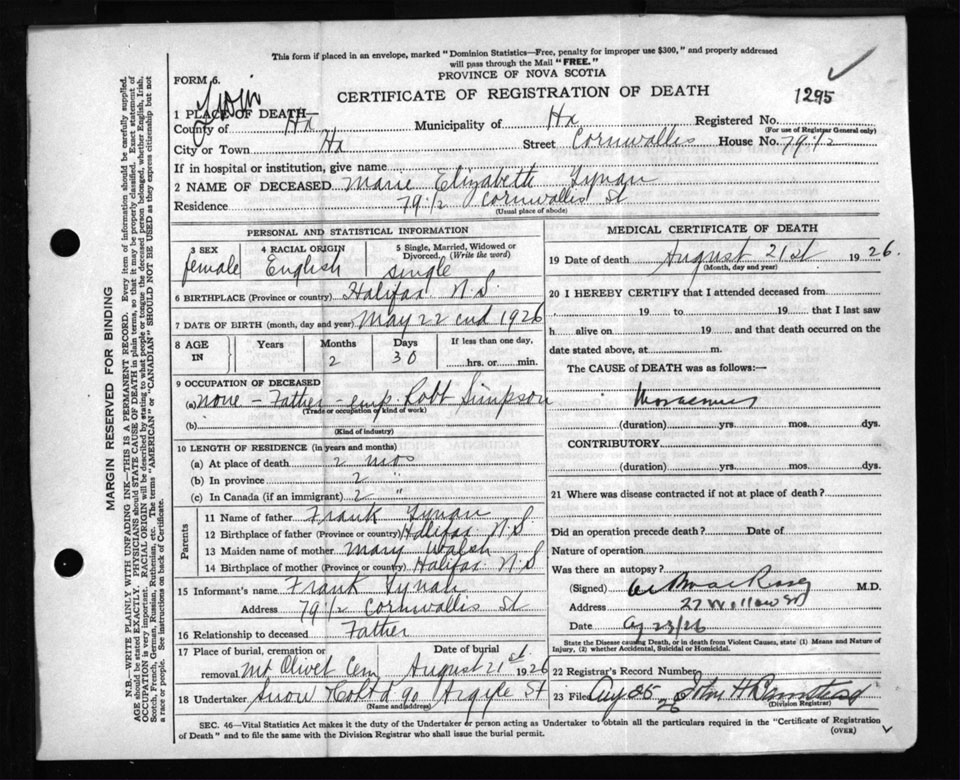 This form if placed in an envelope, marked "Dominion Statistics—Free, penalty for improper use $300," and properly addressed
will pass through the Mail "FREE."
PROVINCE OF NOVA SCOTIA
FORM 6.
CERTIFICATE OF REGISTRATION OF DEATH
1295
Twin
1 PLACE OF DEATH
County of Hx Municipality of Hx Registered No.
(For use of Registrar General only)
City or Town Hx Street Cornwallis House No. 79 1/2
If in hospital or institution, give name
2 NAME OF DECEASED Marie Elizabeth Lynan
Residence 79 1/2 Cornwallis St
(Usual place of abode)
PERSONAL AND STATISTICAL INFORMATION
3 SEX
female
4 RACIAL ORIGIN
English
5 Single, Married, Widowed or
Divorced. (Write the word)
single
6 BIRTHPLACE (Province or country) Halifax N.S.
7 DATE OF BIRTH (month, day and year) May 22 ond 1926
8 AGE
IN
Years
Months
2
Days
30
If less than one day,
hrs. or min.
9 OCCUPATION OF DECEASED
(a) none - Father - emp. Robt Simpson
(Trade or occupation or kind of work)
(b)
(Kind of industry)
10 LENGTH OF RESIDENCE (in years and months)
(a) At place of death 2 mos
(b) In province 2 "
(c) In Canada (if an immigrant) 2 "
Parents
11 Name of father Frank Lynan
12 Birthplace of father (Province or country) Halifax N.S
13 Maiden name of mother Mary Walsh
14 Birthplace of mother (Province or country) Halifax N.S
15 Informant's name Frank Lynan
Address 79 1/2 Cornwallis St
16 Relationship to deceased Father
17 Place of burial, cremation or
removal Mt Olivet Cem
Date of burial
August 21 st. 1926
18 Undertaker Snow & Co Ltd 90 Argyle St
(Name and address)
MEDICAL CERTIFICATE OF DEATH
19 Date of death August 21st 1926.
(Month, day and year)
20 I HEREBY CERTIFY that I attended deceased from
19 to 19 that I last saw
h alive on 19 and that death occurred on the
date stated above, at m.
The CAUSE of DEATH was as follows:—
(duration) yrs. mos. dys.
CONTRIBUTORY
(duration) yrs. mos. dys.
21 Where was disease contracted if not at place of death?
Did an operation precede death? Date of
Nature of operation
Was there an autopsy?
(Signed) M.D.
Address 27 Willow St
Date Aug 23/26
State the Disease causing Death, or in death from Violent Causes, state (1) Means and Nature of
Injury, (2) whether Accidental, Suicidal or Homicidal.
22 Registrar's Record Number
23 Filed Aug 25 - 26 John H
(Division Registrar)
SEC. 46—Vital Statistics Act makes it the duty of the Undertaker or person acting as Undertaker to obtain all the particulars required in the "Certificate of Registration
of Death" and to file the same with the Division Registrar who shall issue the burial permit.
(OVER)
MARGIN RESERVED FOR BINDING
N.B.—WRITE PLAINLY WITH UNFADING INK—THIS IS A PERMANENT RECORD. Every item of information should be carefully supplied.
AGE should be stated EXACTLY. PHYSICIANS should STATE CAUSE OF DEATH in plain terms, so that it may be properly classified. Exact statement of
OCCUPATION is very important. RACIAL ORIGIN will be described by stating to what people or tongue the deceased person belonged, whether English, Irish,
Scotch, French, German, Russian, Ruthenian, etc. The terms "AMERICAN" or "CANADIAN" SHOULD NOT BE USED as they express citizenship but not
a race or people. See instructions on back of Certificate.